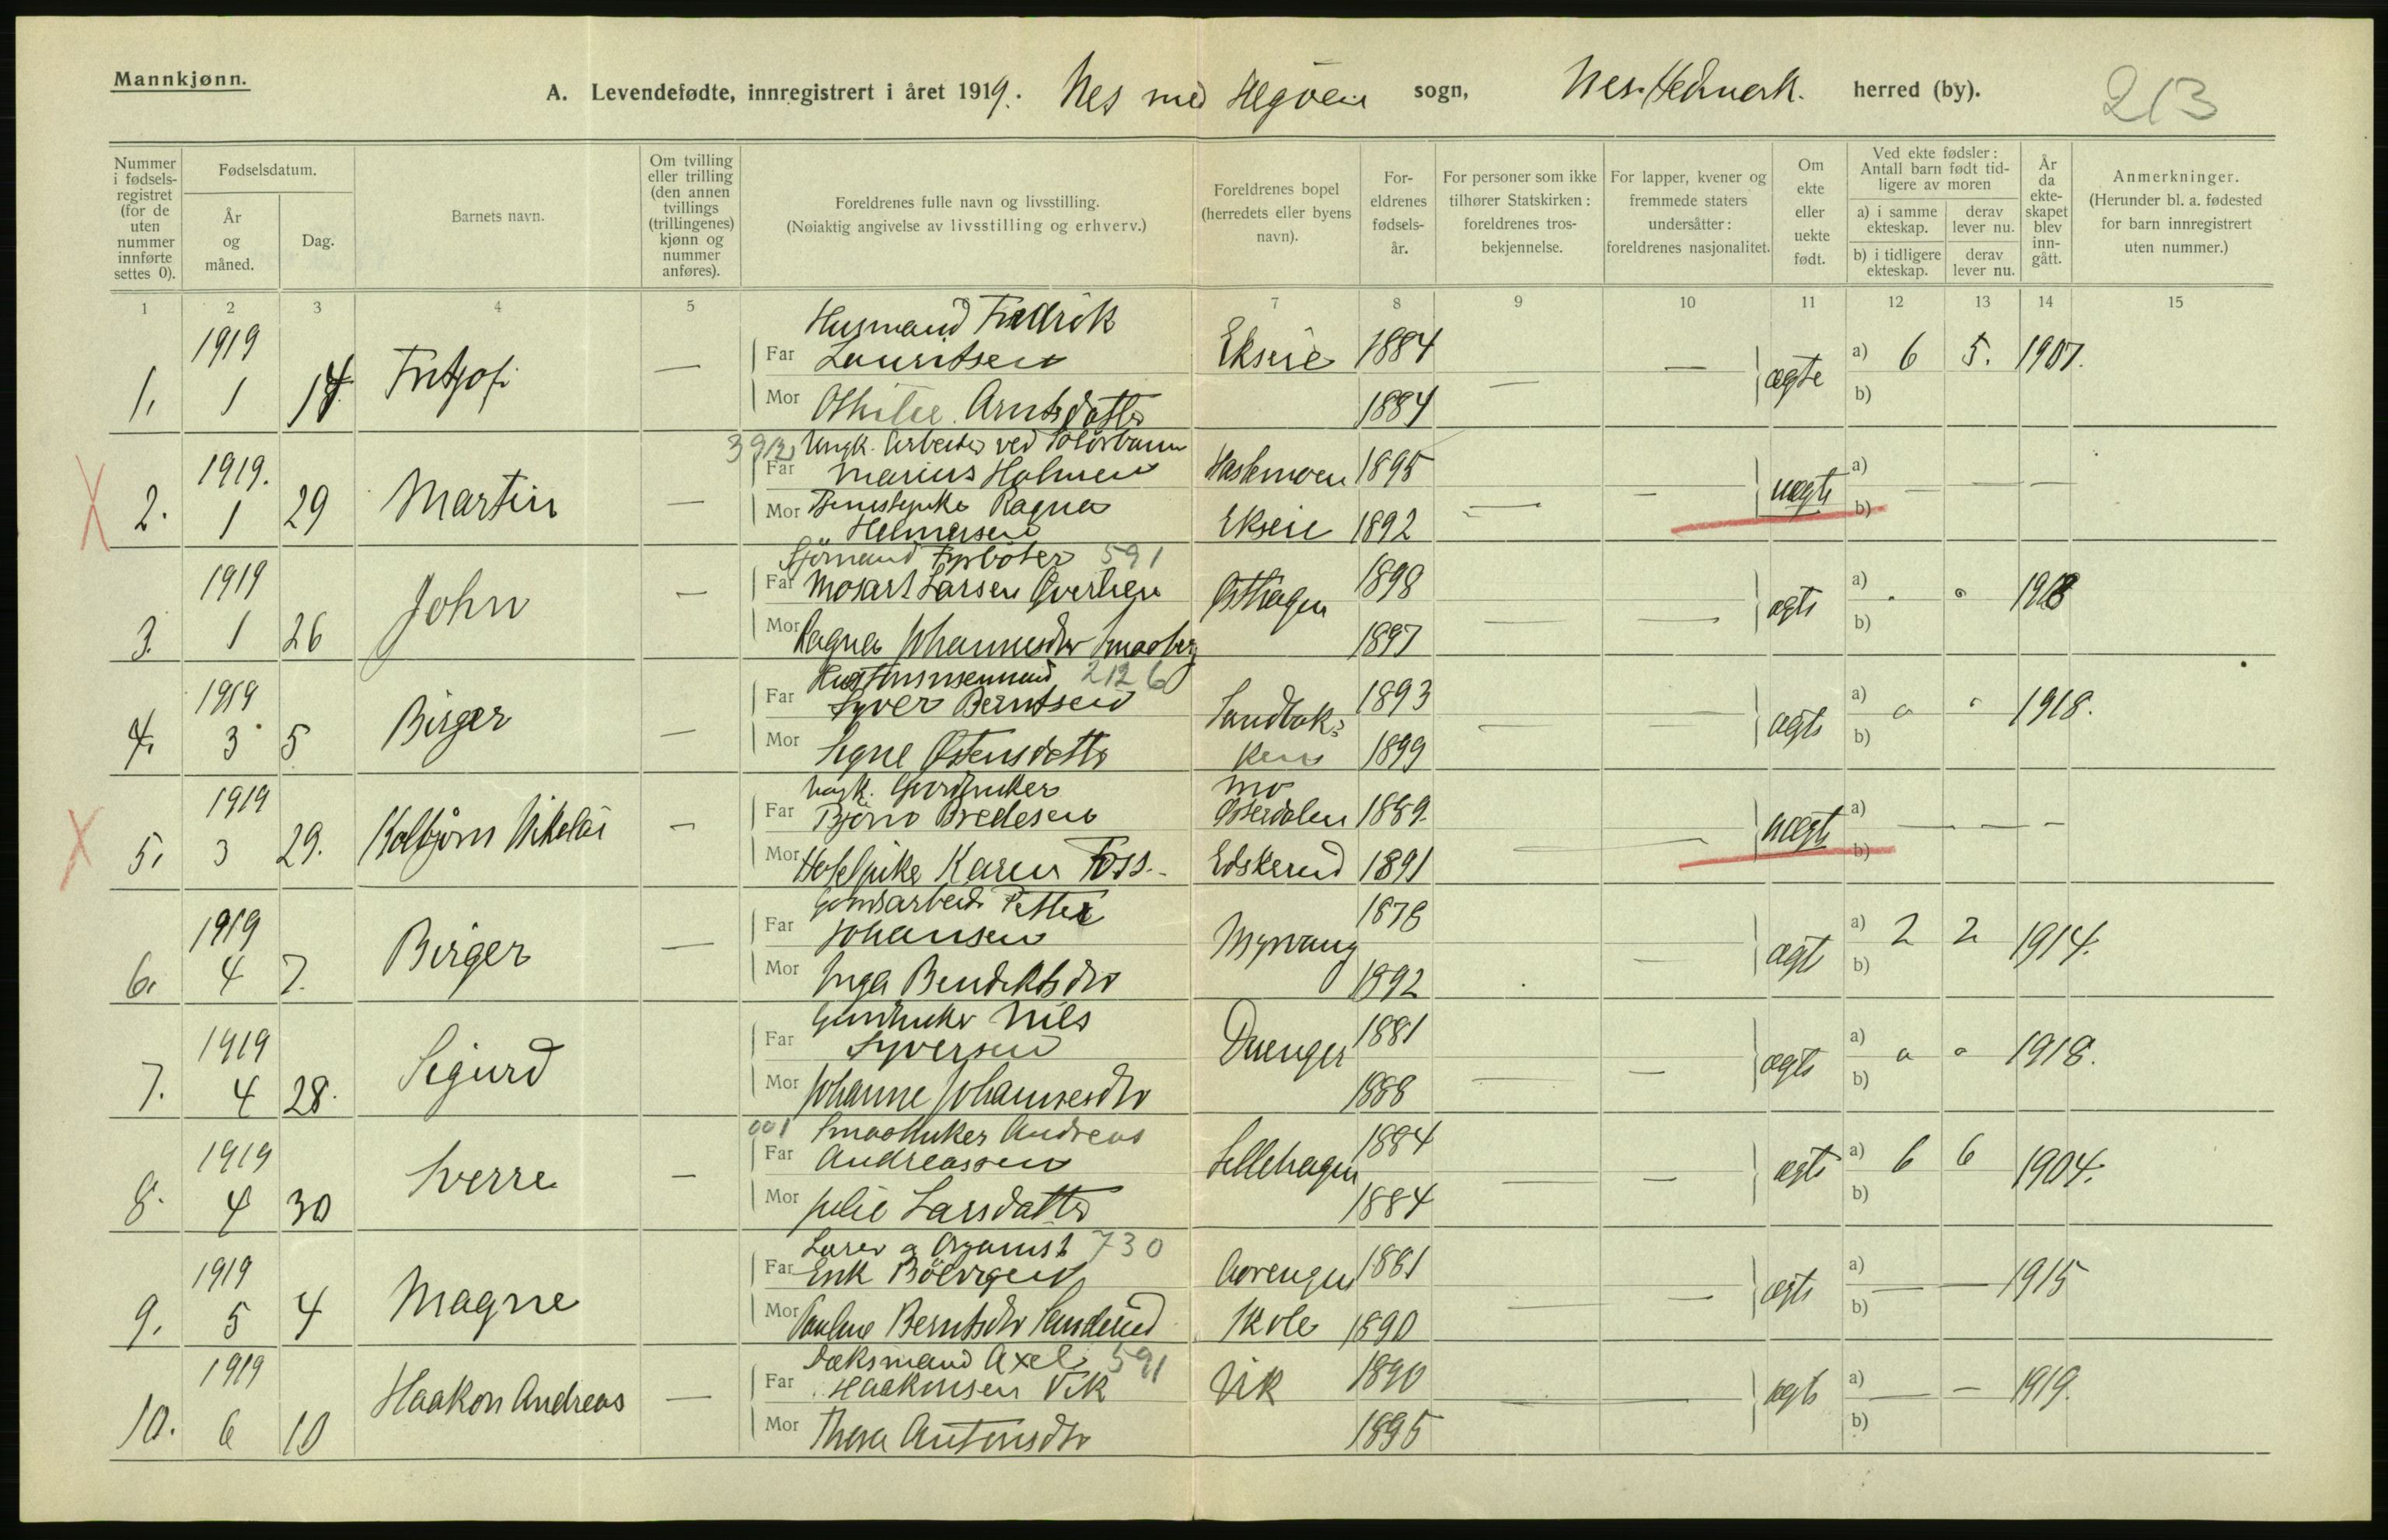 Mannkjønn.
A. Levendefødte, innregistrert i året 1919. Nes med Helgöen sogn, Nes. Hedmark. herred (by). 213
Nummer i fødsels-registret (for de uten nummer innførte settes 0).
Fødselsdatum.
År og måned.
Dag.
Barnets navn.
Om tvilling eller trilling (den annen tvillings (trillingenes) kjønn og nummer anføres).
Foreldrenes fulle navn og livsstilling.
(Nøiaktig angivelse av livsstilling og erhverv.)
Foreldrenes bopel (herredets eller byens navn).
For-eldrenes fødsels-år.
For personer som ikke tilhører Statskirken: foreldrenes tros-bekjennelse.
For lapper, kvener og fremmede staters undersåtter: foreldrenes nasjonalitet.
Om ekte eller uekte født.
Ved ekte fødsler: Antall barn født tid-ligere av moren
a) i samme ekteskap.
derav lever nu.
b) i tidligere ekteskap.
derav lever nu.
År da ekte-skapet blev inn-gått.
Anmerkninger.
(Herunder bl. a. fødested for barn innregistrert uten nummer.)
1 2 3 4 5 7 8 9 10 11 12 13 14 15
Husmand Fredrik
1919 Far Lauritsen Ekseie 1884 a) 6 5. 1907.
1. 1 14. Fritjof — — — ægte b)
Mor Othilie Arntsdatter 1884
Ungk. Arbeider ved
1919. Far Marius Holmen Haslemoen 1895 a)
2. 1 29 Martin — — — uægte — — —
Mor Ragna Helmersen Ekseie 1892 b)
Sjömand Fyrböter 591
1919 Far Mosart Larsen Overlien 1898 a)
3. 1 26 John — — — ægte 1918
Mor Ragna Johannesdtr 1897 b)
2126
1919 Far Syver Berntsen 1893 a)
4. 3 5 Birger — Sandbak= — — ægte 1918.
Mor Signe Østensdatter ken 1899 b)
Ungk. Gaardbruker Mo
1919 Far Björn Bredesen Østerdalen 1889. a)
5. 3 29. Kolbjörn Nikolai — — — uægte — — —
Mor Karen Foss. 1891 b)
Gaardsarbeid. Petter 1878
1919 Far Johansen Myrvang a) 2 2 1914.
6. 4 7. Birger — — ægte b)
Mor Inga Bendiktsdtr 1892
Gaardbruker Nils
1919 Far Syversen 1881 a)
7. 4 28. Sigurd — — ægte 1918.
Mor Johanne Johannesdtr 1888 b)
001 Smaabruker Andreas
1919 Far Andreassen Sellehagen 1884 a) 6 6 1904.
8. 4 30 Sverre — — — ægte b)
Mor Julie Larsdatter 1884
Lærer og Organist 730
1919 Far Erik 1881 a)
9. 5 4 Magne — — ægte — — 1915
Mor Pauline Berntsdtr Skole 1890 b)
Axel 591
1919 Far Haakonsen Vik Vik 1890 a)
10. 6 10 Haakon Andreas — — — ægte — — 1919.
Mor Thora Antonsdtr 1895 b)